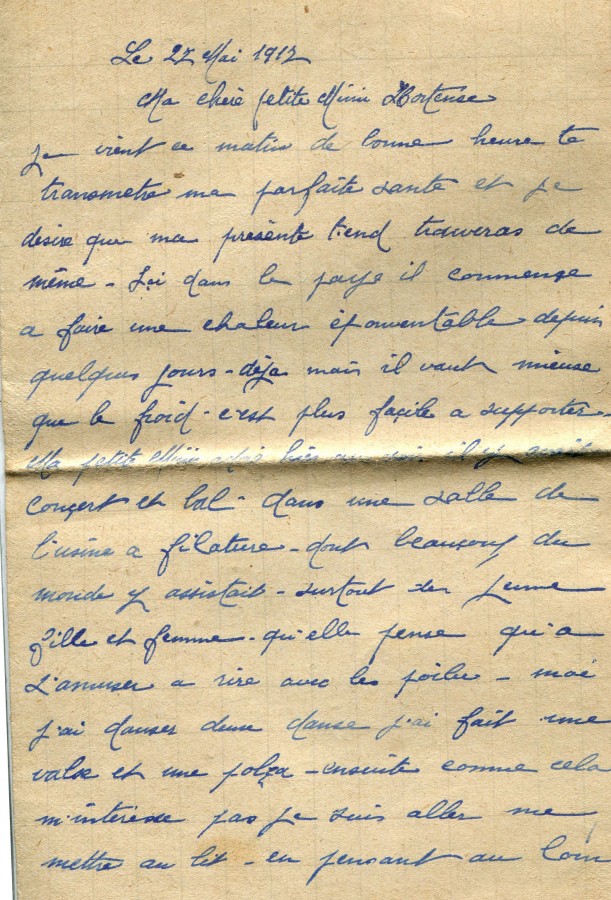 Le 27 Mai 1917
Ma cheré petite Mimi Hortense
Je vient ce matin de bonne heure te
transmetre ma parfaite santé et je
désire que ma présente t'end trouveras de
même - Ici dans le paye il commence
a faire une chaleur épouventable depuis
quelques jours - déja mais il vaut mieuse
que le froid - c'est plus façile a supporter
Ma petite Mimi adoré hier au soir il y avait
conçert et bal - dans une salle de
l'usine a filature - dont beaucoup du
monde y assistait - surtout des jeune
fille et femme - qu'elle pense qu'a
s'amuser a rire avec les poilu - moi
j'ai danser deux danse j'ai fait une
valse et une polça - ensuite comme cela
m'intéresse pas je suis aller me
mettre au lit - en pensant au bon